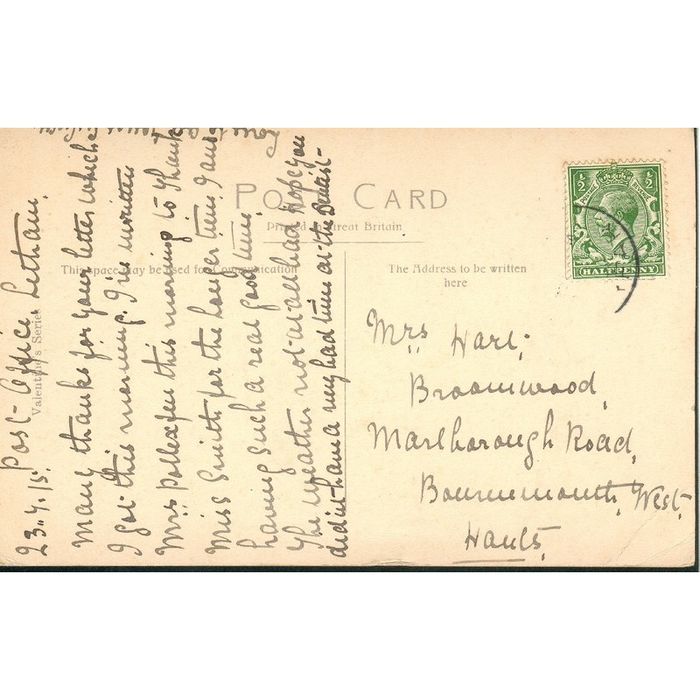 POST CARD
Printed in Great Britain
This space may be used for communication
The Address to be written
here
Valentine's Series
1/2 1/2
POSTAGE
HALFPENNY
23.4.15. Post-Office Letham.
Many thanks for your letter which
I got this morning. I've written
Mrs Pollexfen this morning to thank
Miss Smith for the longer time I am
having such a real good time.
The weather not at all bad hope you
didn't have a very bad time at the Dentist-
Mrs Hart
Broomwood,
Marlborough Road,
Bournemouth, West.
Hants